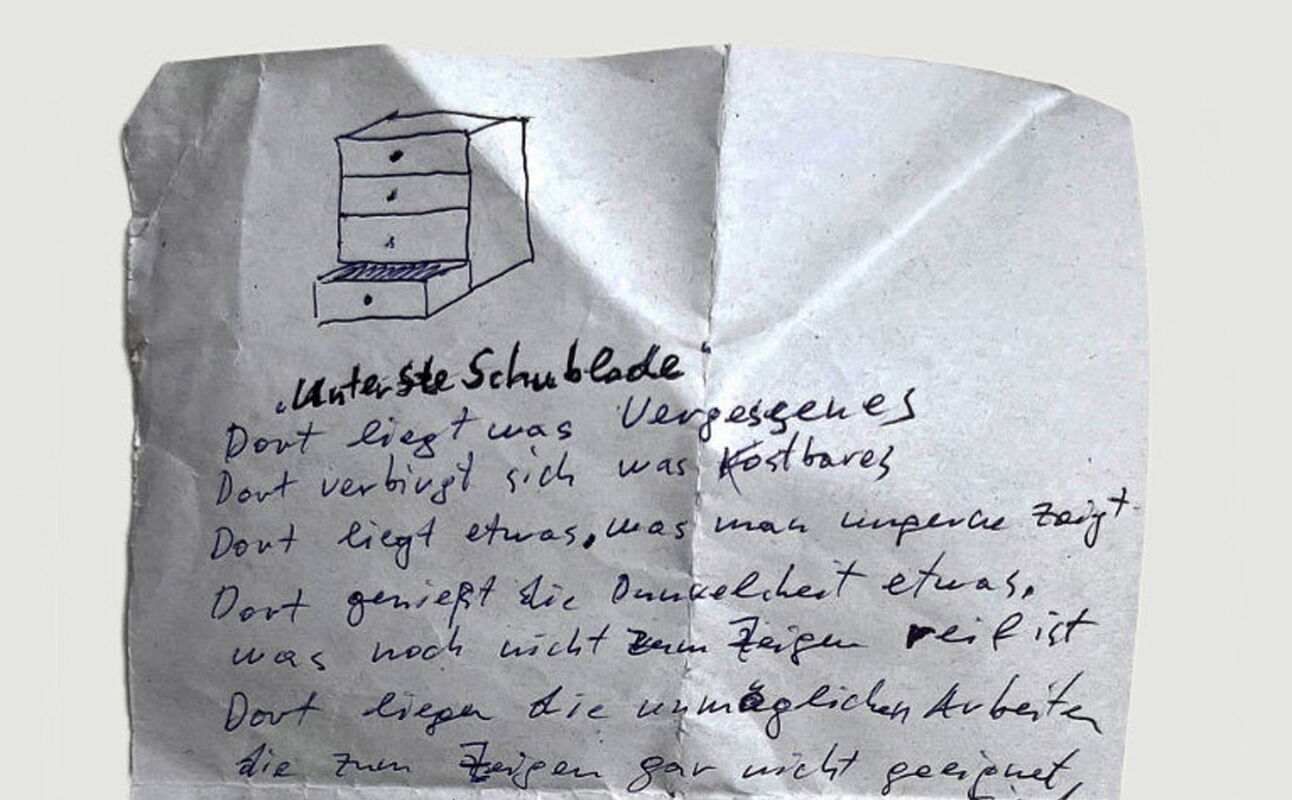 „Unterste Schublade"
Dort liegt was Vergessenes
Dort verbirgt sich was Kostbares
Dort liegt etwas, was man ungerne zeigt
Dort genießt die Dunkelheit etwas,
was noch nicht zum Zeigen reif ist
Dort liegen die unmöglichen Arbeiten
die zum Zeigen gar nicht geeignet,